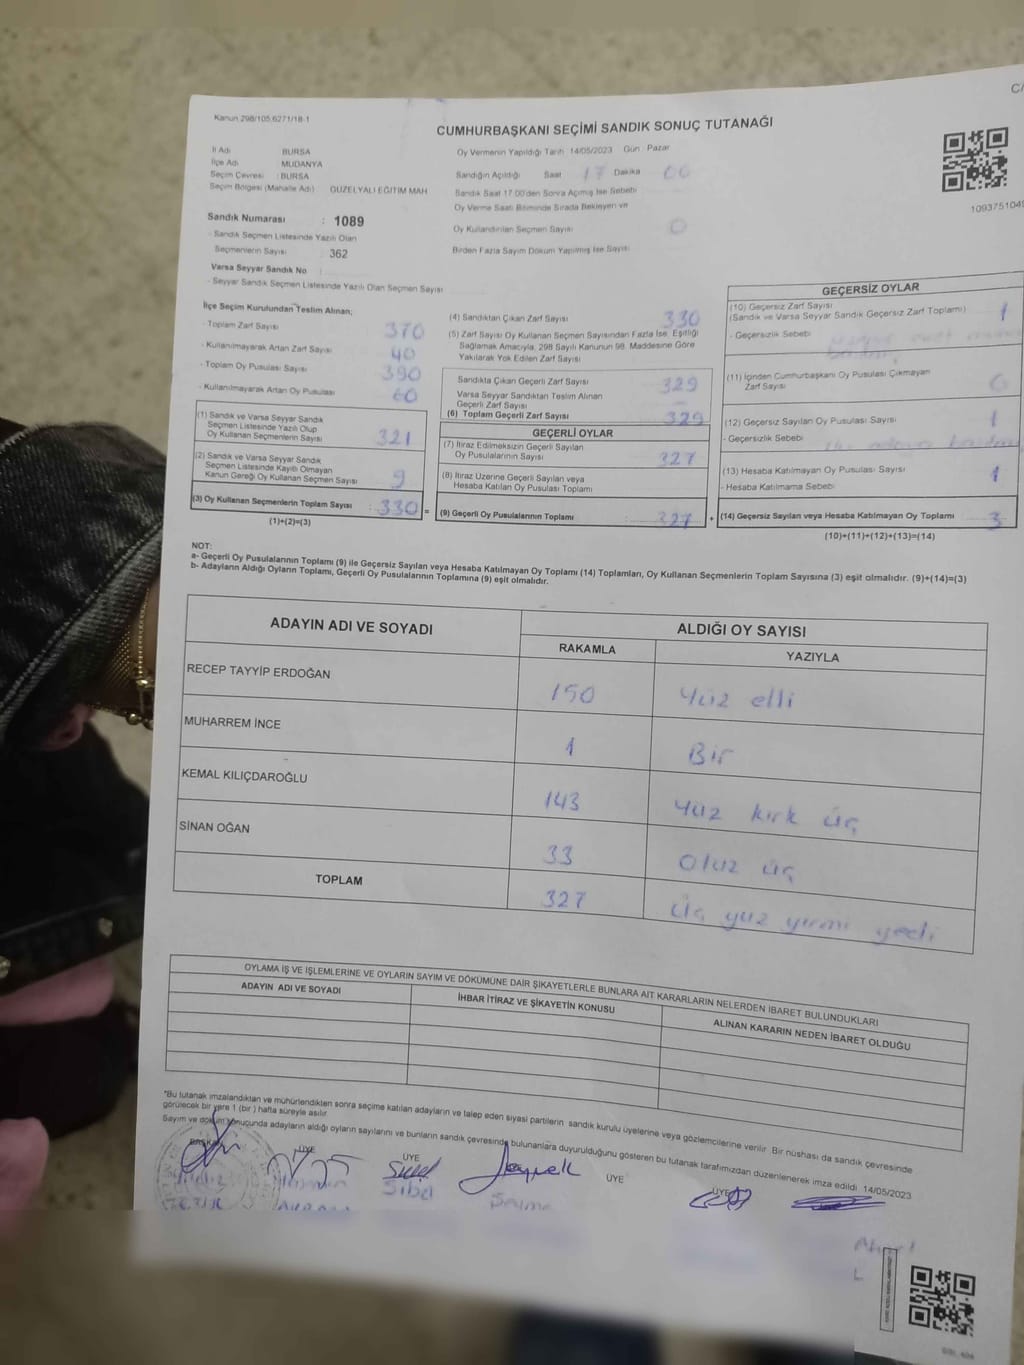 C/
Kanun 298/105,6271/18-1
CUMHURBAŞKANI SEÇİMİ SANDIK SONUÇ TUTANAĞI
İl Adı BURSA
İlçe Adı MUDANYA
Seçim Çevresi : BURSA
Seçim Bölgesi (Mahalle Adı) GÜZELYALI EĞİTİM MAH
Sandık Numarası : 1089
- Sandık Seçmen Listesinde Yazılı Olan
Seçmenlerin Sayısı : 362
Varsa Seyyar Sandık No
- Seyyar Sandık Seçmen Listesinde Yazılı Olan Seçmen Sayısı
Oy Vermenin Yapıldığı Tarih 14/05/2023 Gün : Pazar
Sandığın Açıldığı Saat 17 Dakika 00
Sandık Saat 17.00'den Sonra Açılmış İse Sebebi
Oy Verme Saati Bitiminde Sırada Bekleyen ve
Oy Kullandırılan Seçmen Sayısı 0
Birden Fazla Sayım Döküm Yapılmış İse Sayısı
1093751049
İlçe Seçim Kurulundan Teslim Alınan;
- Toplam Zarf Sayısı 370
- Kullanılmayarak Artan Zarf Sayısı 40
- Toplam Oy Pusulası Sayısı 390
- Kullanılmayarak Artan Oy Pusulası 60
(1) Sandık ve Varsa Seyyar Sandık
Seçmen Listesinde Yazılı Olup
Oy Kullanan Seçmenlerin Sayısı 321
(2) Sandık ve Varsa Seyyar Sandık
Seçmen Listesinde Kayıtlı Olmayan
Kanun Gereği Oy Kullanan Seçmen Sayısı 9
(3) Oy Kullanan Seçmenlerin Toplam Sayısı : 330 =
(1)+(2)=(3)
(4) Sandıktan Çıkan Zarf Sayısı 330
(5) Zarf Sayısı Oy Kullanan Seçmen Sayısından Fazla İse, Eşitliği
Sağlamak Amacıyla, 298 Sayılı Kanunun 98. Maddesine Göre
Yakılarak Yok Edilen Zarf Sayısı
Sandıkta Çıkan Geçerli Zarf Sayısı 329
Varsa Seyyar Sandıktan Teslim Alınan
Geçerli Zarf Sayısı
(6) Toplam Geçerli Zarf Sayısı 329
GEÇERLİ OYLAR
(7) İtiraz Edilmeksizin Geçerli Sayılan
Oy Pusulalarının Sayısı 327
(8) İtiraz Üzerine Geçerli Sayılan veya
Hesaba Katılan Oy Pusulası Toplamı
(9) Geçerli Oy Pusulalarının Toplamı : 327 +
GEÇERSİZ OYLAR
(10) Geçersiz Zarf Sayısı
(Sandık ve Varsa Seyyar Sandık Geçersiz Zarf Toplamı) 1
- Geçersizlik Sebebi
(11) İçinden Cumhurbaşkanı Oy Pusulası Çıkmayan
Zarf Sayısı 0
(12) Geçersiz Sayılan Oy Pusulası Sayısı 1
- Geçersizlik Sebebi
(13) Hesaba Katılmayan Oy Pusulası Sayısı 1
- Hesaba Katılmama Sebebi
(14) Geçersiz Sayılan veya Hesaba Katılmayan Oy Toplamı 3
(10)+(11)+(12)+(13)=(14)
NOT:
a- Geçerli Oy Pusulalarının Toplamı (9) ile Geçersiz Sayılan veya Hesaba Katılmayan Oy Toplamı (14) Toplamları, Oy Kullanan Seçmenlerin Toplam Sayısına (3) eşit olmalıdır. (9)+(14)=(3)
b- Adayların Aldığı Oyların Toplamı, Geçerli Oy Pusulalarının Toplamına (9) eşit olmalıdır.
ADAYIN ADI VE SOYADI ALDIĞI OY SAYISI
RAKAMLA YAZIYLA
RECEP TAYYİP ERDOĞAN 150 Yüz elli
MUHARREM İNCE 1 Bir
KEMAL KILIÇDAROĞLU 143 Yüz kırk üç
SİNAN OĞAN 33 Otuz üç
TOPLAM 327 Üç yüz yirmi yedi
OYLAMA İŞ VE İŞLEMLERİNE VE OYLARIN SAYIM VE DÖKÜMÜNE DAİR ŞİKAYETLERLE BUNLARA AİT KARARLARIN NELERDEN İBARET BULUNDUKLARI
ADAYIN ADI VE SOYADI İHBAR İTİRAZ VE ŞİKAYETİN KONUSU ALINAN KARARIN NEDEN İBARET OLDUĞU
*Bu tutanak imzalandıktan ve mühürlendikten sonra seçime katılan adayların ve talep eden siyasi partilerin sandık kurulu üyelerine veya gözlemcilerine verilir. Bir nüshası da sandık çevresinde
görülecek bir yere 1 (bir) hafta süreyle asılır.
Sayım ve döküm sonuçunda adayların aldığı oyların sayılarını ve bunların sandık çevresinde bulunanlara duyurulduğunu gösteren bu tutanak tarafımızdan düzenlenerek imza edildi 14/05/2023
BAŞKAN ÜYE ÜYE ÜYE ÜYE
Sibel